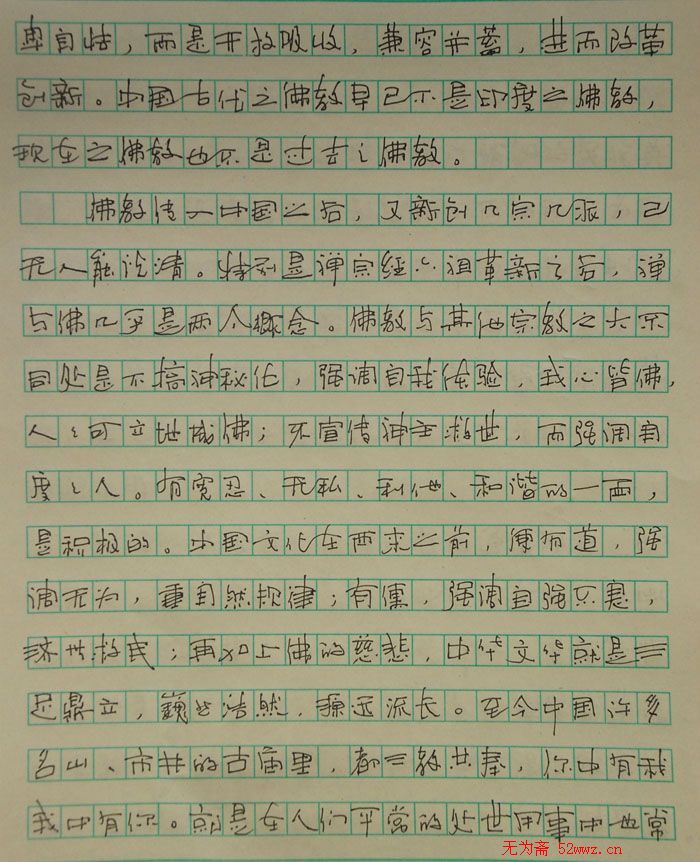 卑自怯，而是开放吸收，兼容并蓄，进而改革
创新。中国古代之佛教早已不是印度之佛教，
现在之佛教也不是过去之佛教。
佛教传入中国之后，又新创几宗几派，已
无人能说清。特别是禅宗经六祖革新之后，禅
与佛几乎是两个概念。佛教与其他宗教之大不
同处是不搞神秘化，强调自我体验，我心皆佛，
人人可立地成佛；不宣传神主救世，而强调自
度之人。有宽忍、无私、利他、和谐的一面，
是积极的。中国文化在西来之前，便有道，强
调无为，重自然规律；有儒，强调自强不息，
济世救民；再加上佛的慈悲，中华文华就是三
足鼎立，巍然浩然，源远流长。至今中国许多
名山、市井的古庙里，都三教共奉，你中有我
我中有你。就是在人们平常的处世用事中也常
无为斋 52wwz.cn